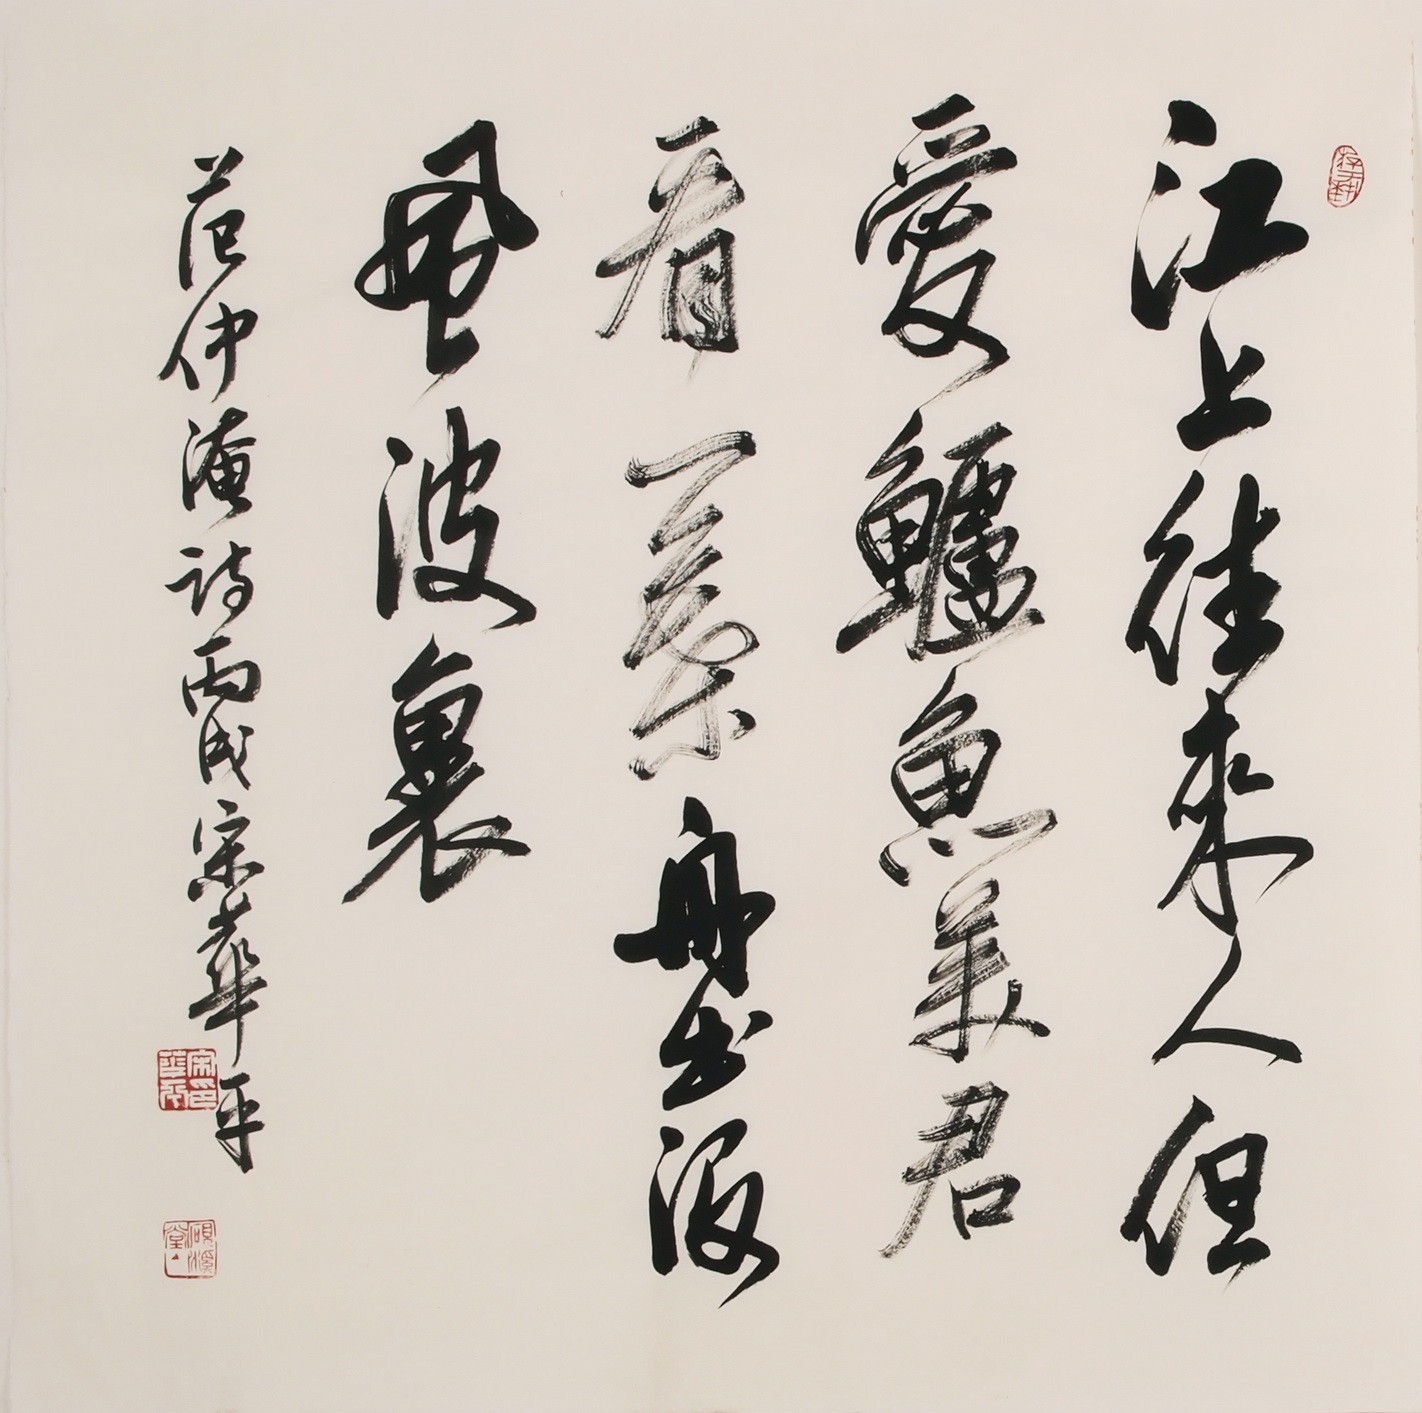 江上往來人但
愛鱸魚美君
看一葉舟出沒
風波裏
范仲淹詩丙戌宋華平
宋華平印